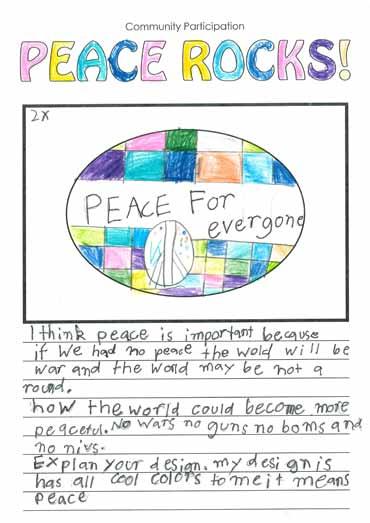 Community Participation
PEACE ROCKS!
2x
PEACE For
everyone
I think peace is important because
if we had no peace the wold will be
war and the world may be not a
round.
how the world could become more
peaceful. No wars no guns no boms and
no nivs.
Explan your design. my design is
has all cool colors to me it means
peace